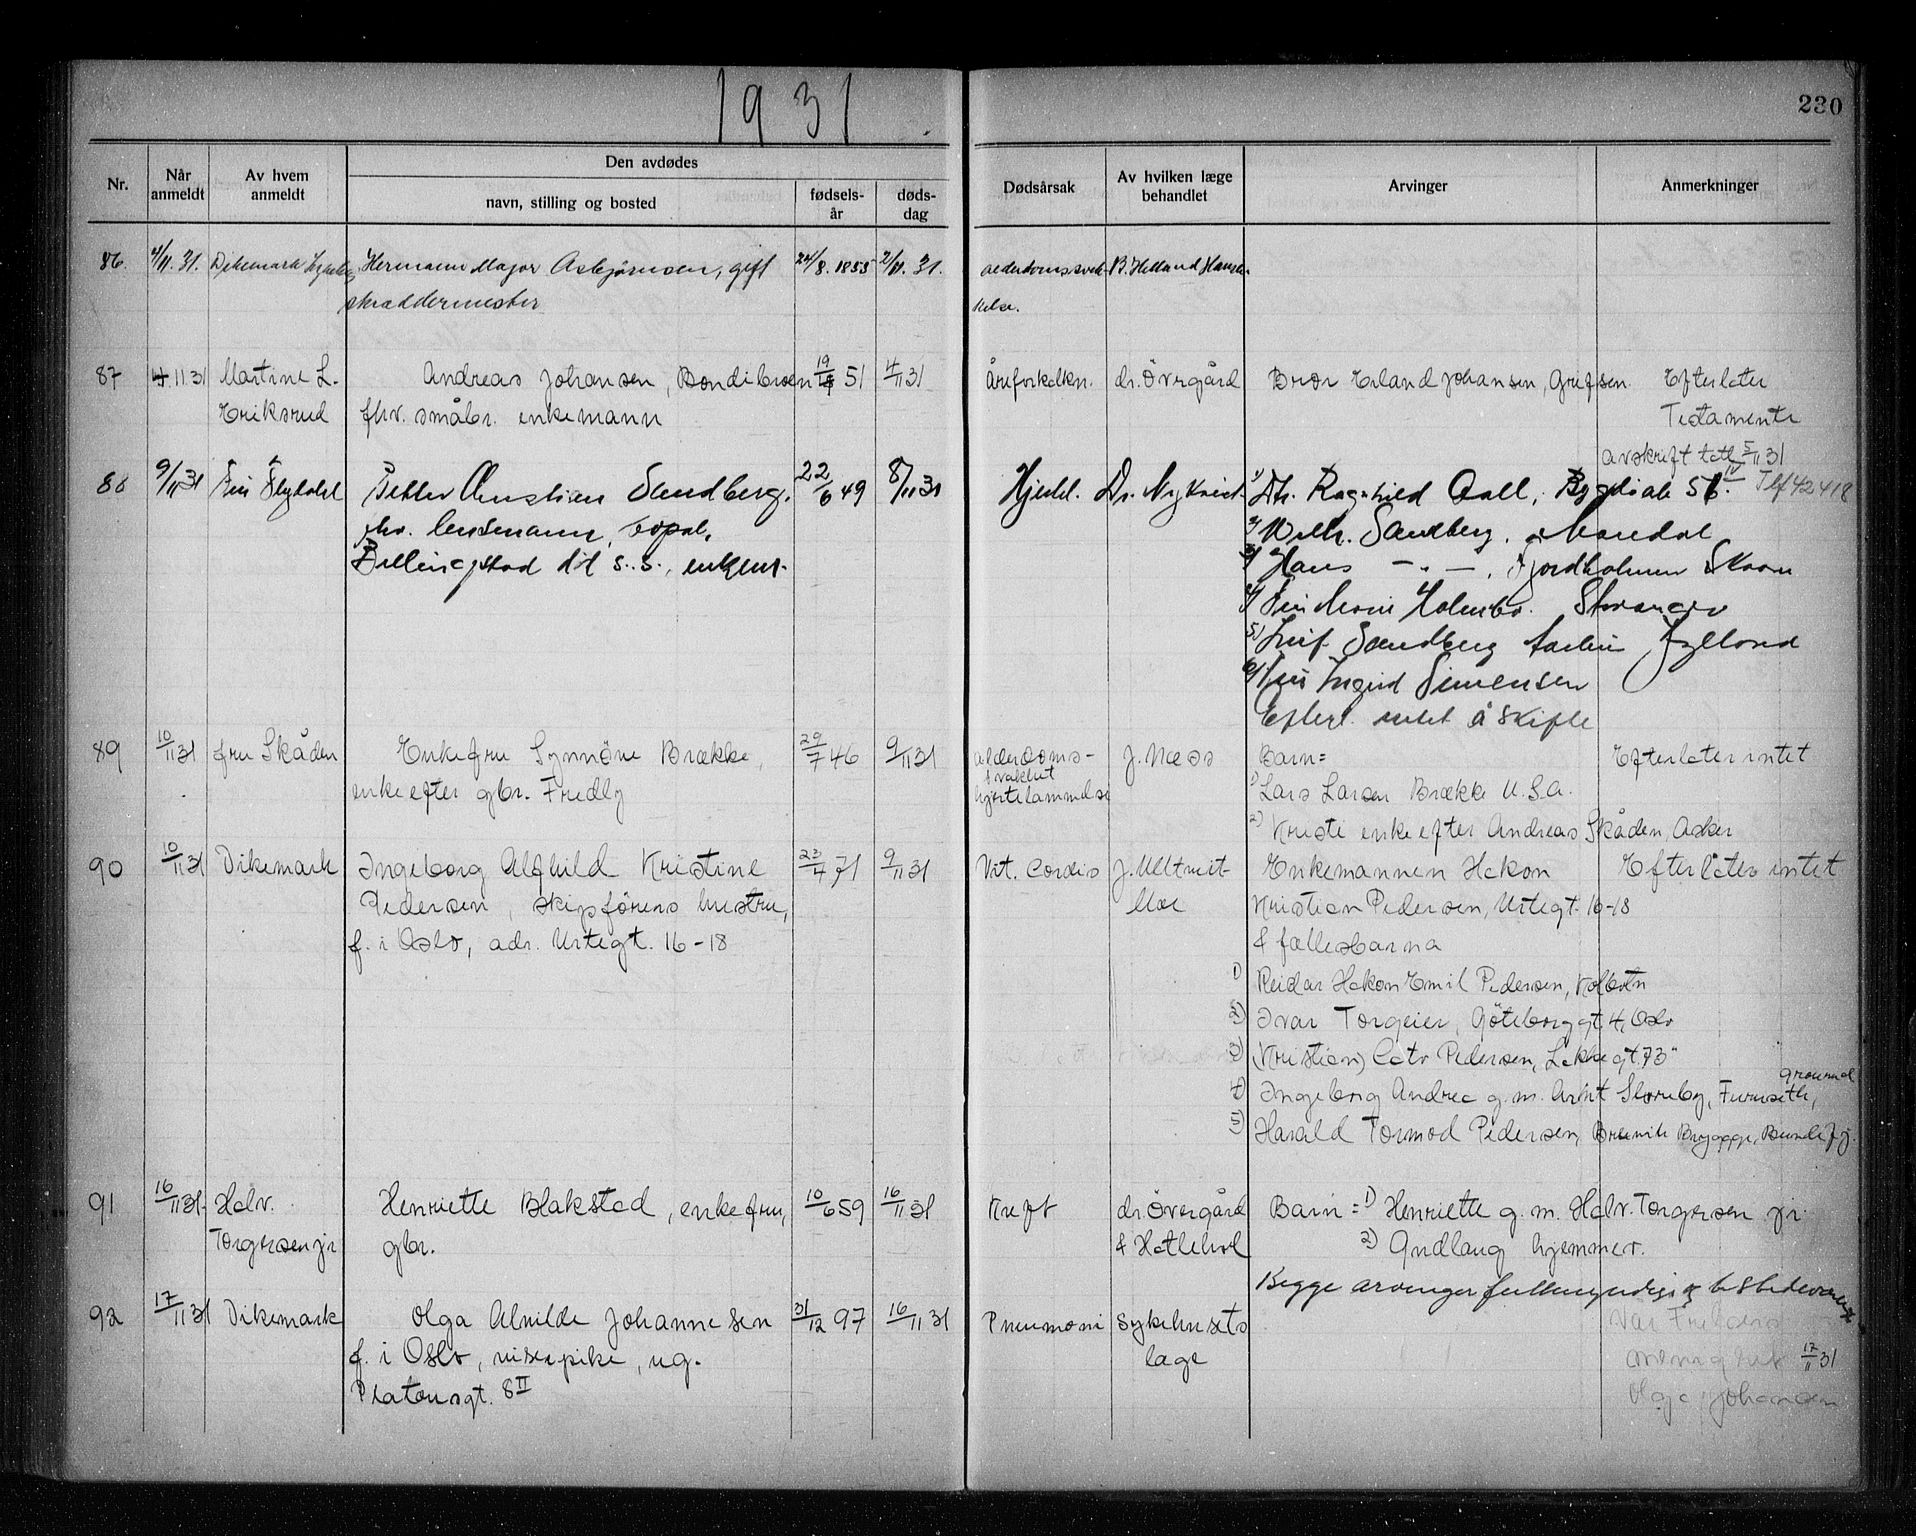 1931
230
Nr.
Når anmeldt
Av hvem anmeldt
Den avdødes
navn, stilling og bosted
fødsels-år
døds-dag
Dødsårsak
Av hvilken læge behandlet
Arvinger
Anmerkninger
86. 4/11. 31. Dikemark Hermann Major Asbjørnsen, gift 24/8. 1855 2/11. 31. alderdomssvek- B. Helland Hansen
skræddermester kelse.
87 4.11.31 Martine L. Andreas Johansen, Bondibroen 19/ 51 4/11 31 Åreforkalkn. dr. Övergård Bror Erland Johansen, Grefsen. Efterlater
Eriksrud fhv. småbr. enkemann Testamente
avskrift 5/11 31
88 9/11 31 Fru Flytdal Petter Christian Sandberg, 22/6 49 8/11 31 Hjertel. Dr. Nykvist 1) Ragnhild Aall, 56. Tlf 42418
fhv. lensmann, bopæl, 2) Wilh. Sandberg, Mandal
Billingstad st. s.s., enkem. 3) Hans — " — , Fjordholmen Skaan
4) Fru Holmbo. Stavanger
5) Leif Sandberg Jylland
6) Fru Ingrid Simensen
Efterl. intet å skifte
89 10/11 31 fru Skåden Enkefru Synnöve Brække, 29/7 46 9/11 31 alderdoms- J. Næss Barn= Efterlater intet
enke efter gbr. Fredly svakhet
hjertelammelse 1) Lars Larsen Brække U.S.A.
2) Kristi enke efter Andreas Skåden, Asker
90 10/11 31 Dikemark Ingeborg Alfhild Kristine 23/7 71 9/11 31 Vit. Cordis J. Ulltveit- Enkemannen Hakon Efterlater intet
Pedersen, skipsförers hustru, Moe Kristian Pedersen, Urtegt. 16-18
f. i Oslo, adr. Urtegt. 16-18 & fællesbarna
1) Reidar Hakon Emil Pedersen, Kolbotn
2) Ivar Torgeier, Göteborggt. 4, Oslo
3) (Kristian) Pedersen, Lakkegt. 73
4) Ingeborg Andrea g.m. Storeby, Furuseth,
5) Harald Tormod Pedersen, Brevik Brygge, Bundefj.
91 16/11 31. Halv. Henriette Blakstad, enkefru, 10/6 59 16/11 31 Kreft dr. Övergård Barn = 1) Henriette g.m. Halv. Torgersen jr.
Torgersen jr gbr. & Hatlehol 2) Gudlaug hjemmev.
Begge arvinger fullmyndige og tilstedeværende
92 17/11 31 Dikemark Olga Alvilde Johannesen 31/12 97 16/11 31 Pneumoni Sykehusets
f. i Oslo, visepike, ug. læge 17/11 31
Platousgt. 8 II Olga Johansen